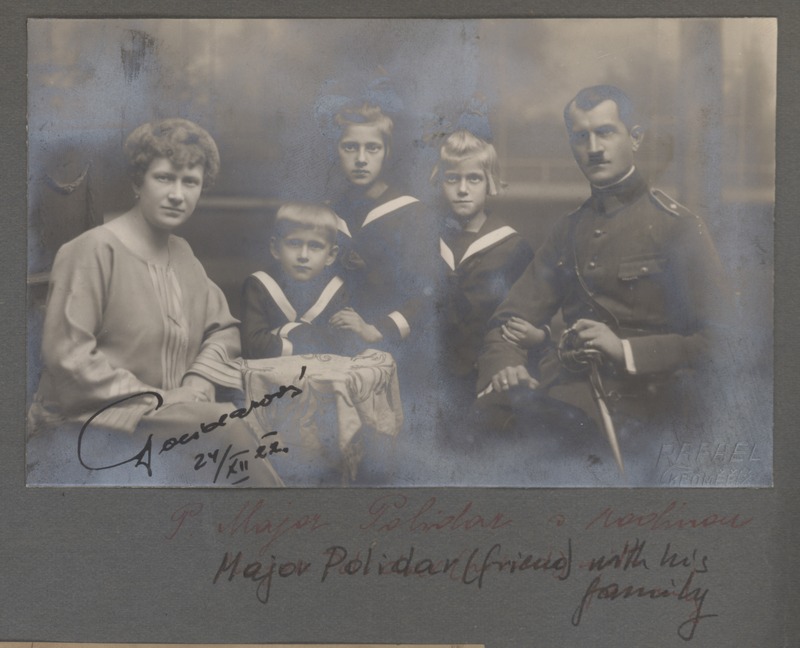 24/XII 22.
P. Major Polidar s rodinou
Major Polidar (friend) with his
family